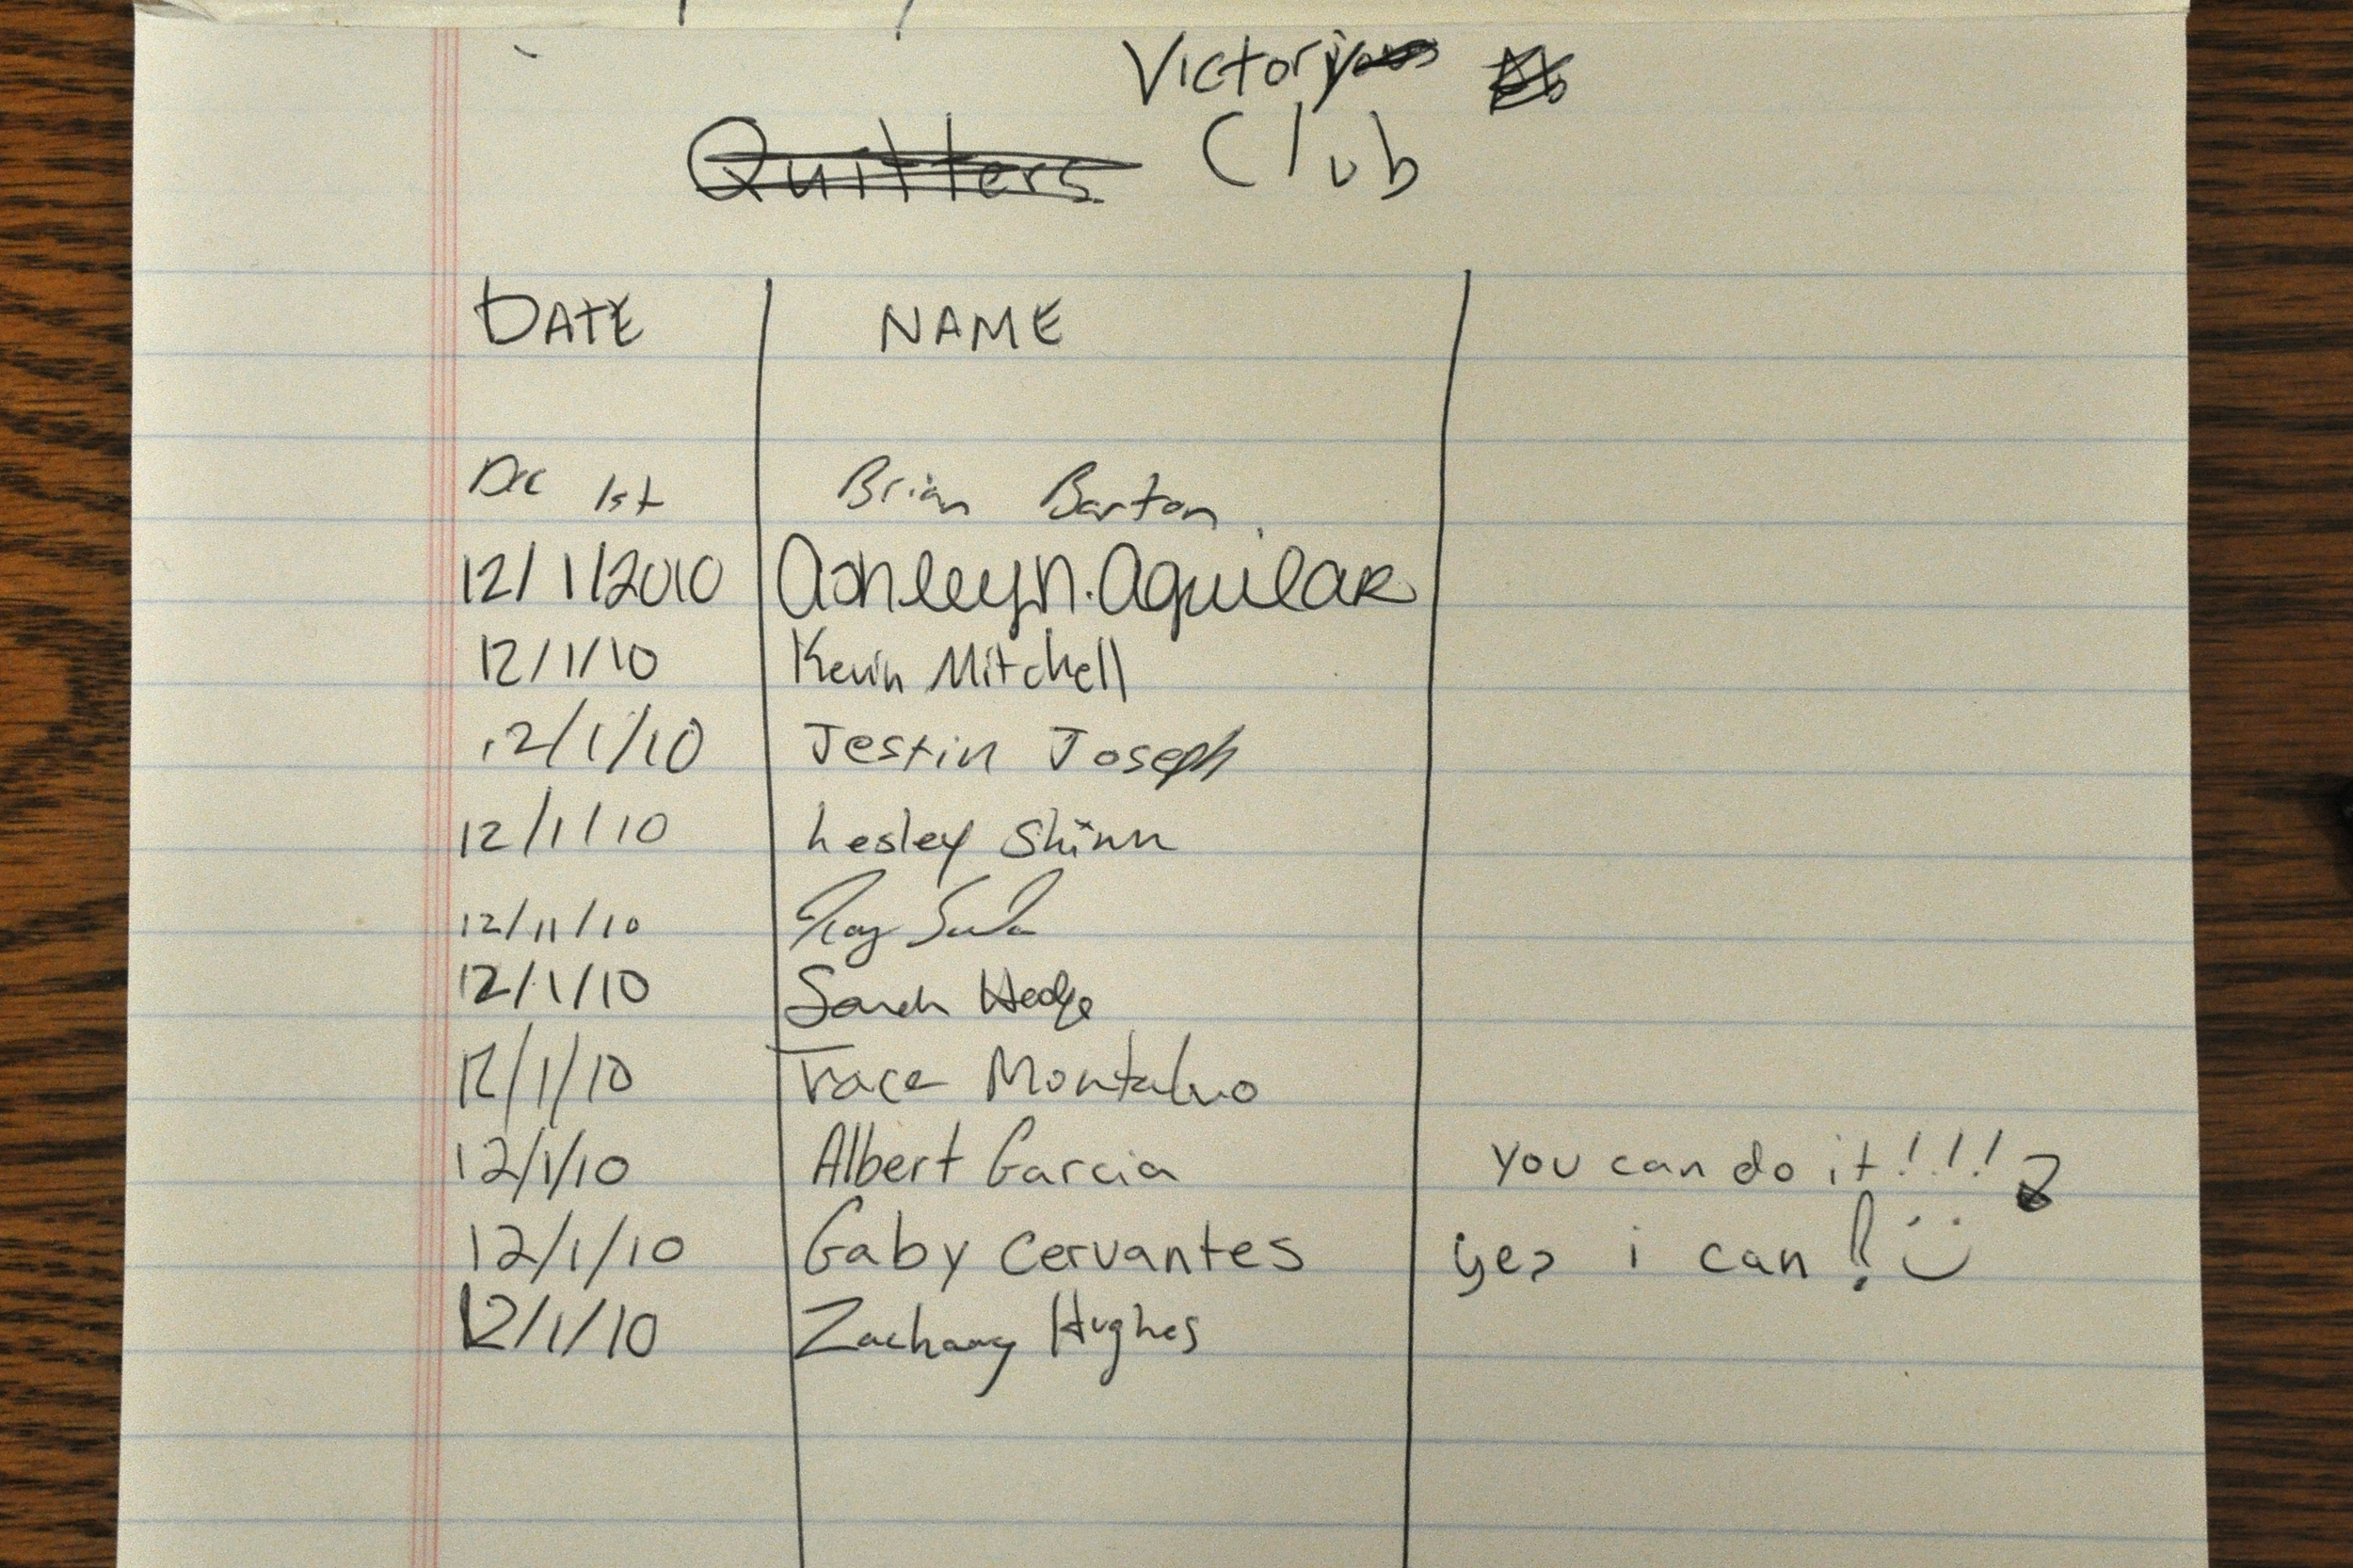 Victory
Quitters Club
DATE NAME
Dec 1st Brian Barton
12/1/2010 Ashley N. Aguilar
12/1/10 Kevin Mitchell
12/1/10 Jestin Joseph
12/1/10 Lesley Shinn
12/11/10
12/1/10 Sarah Hedge
12/1/10 Trace Montalvo
12/1/10 Albert Garcia You can do it!!!
12/1/10 Gaby Cervantes yes i can!
12/1/10 Zachary Hughes